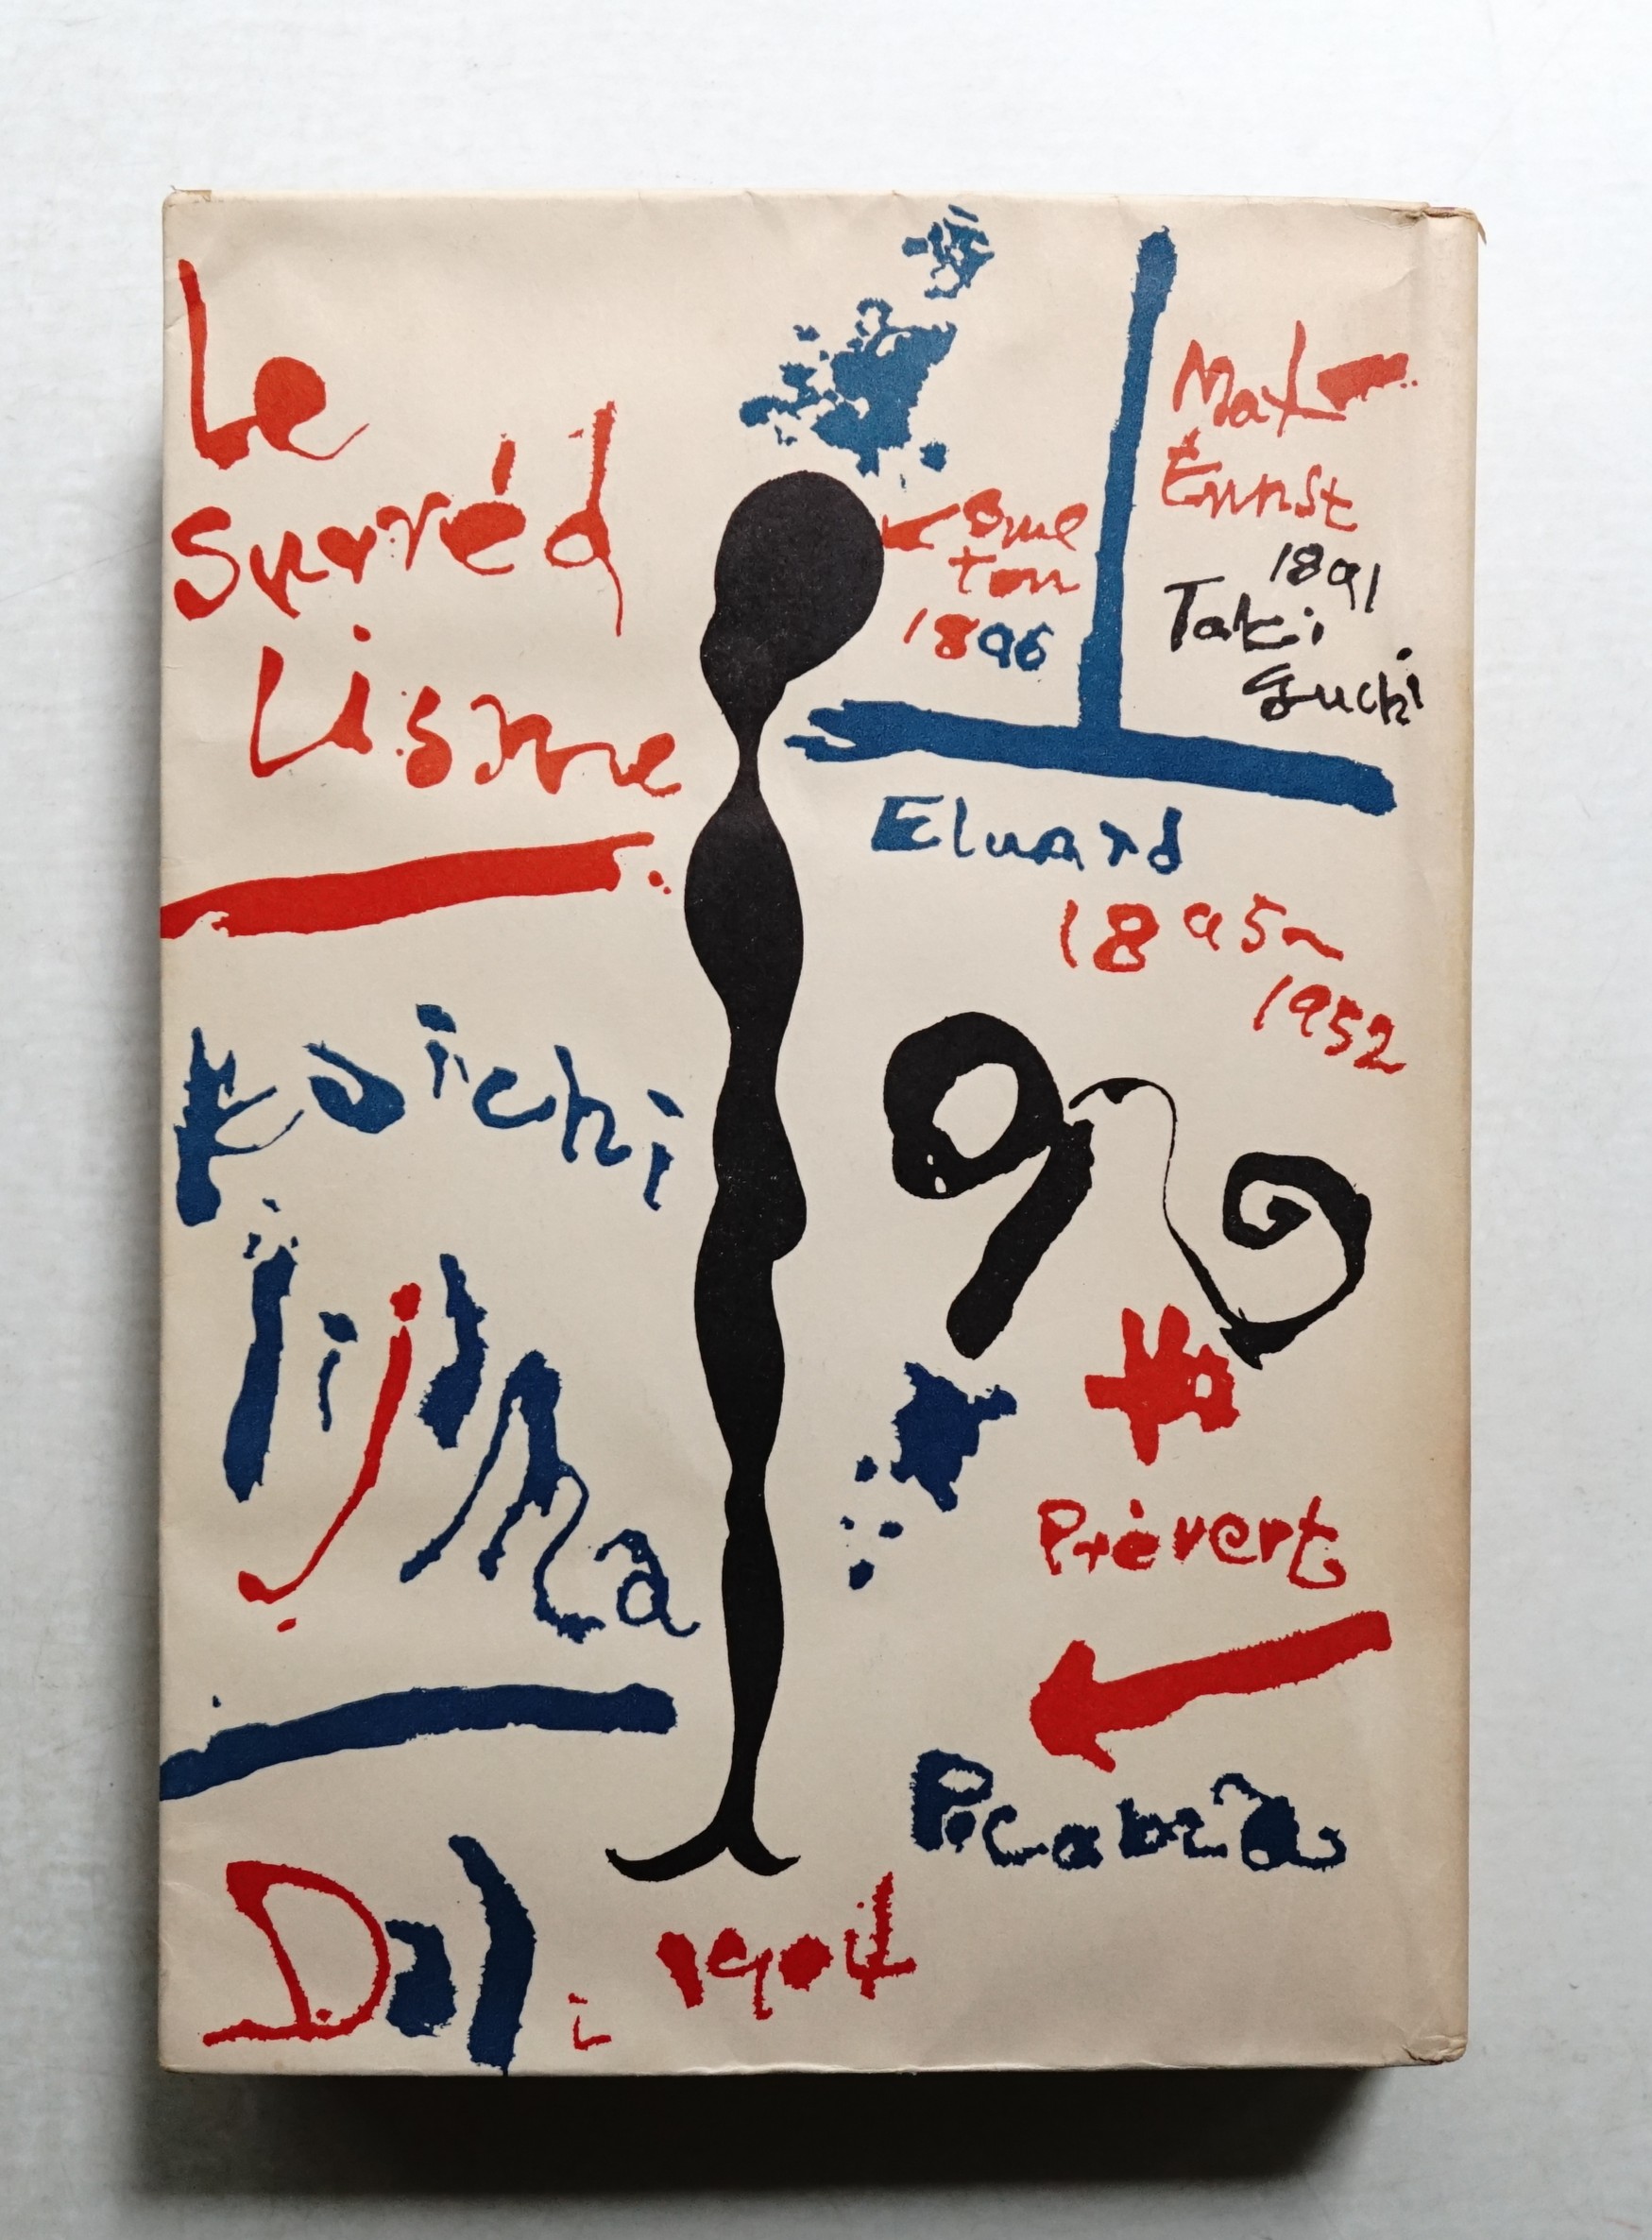 Le
Surréa
Lisme
Koichi
Iijima
Dali 1904
Bre
ton
1896
Max
Ernst
1891
Taki
guchi
Eluard
1895~
1952
Prévert
Picabia